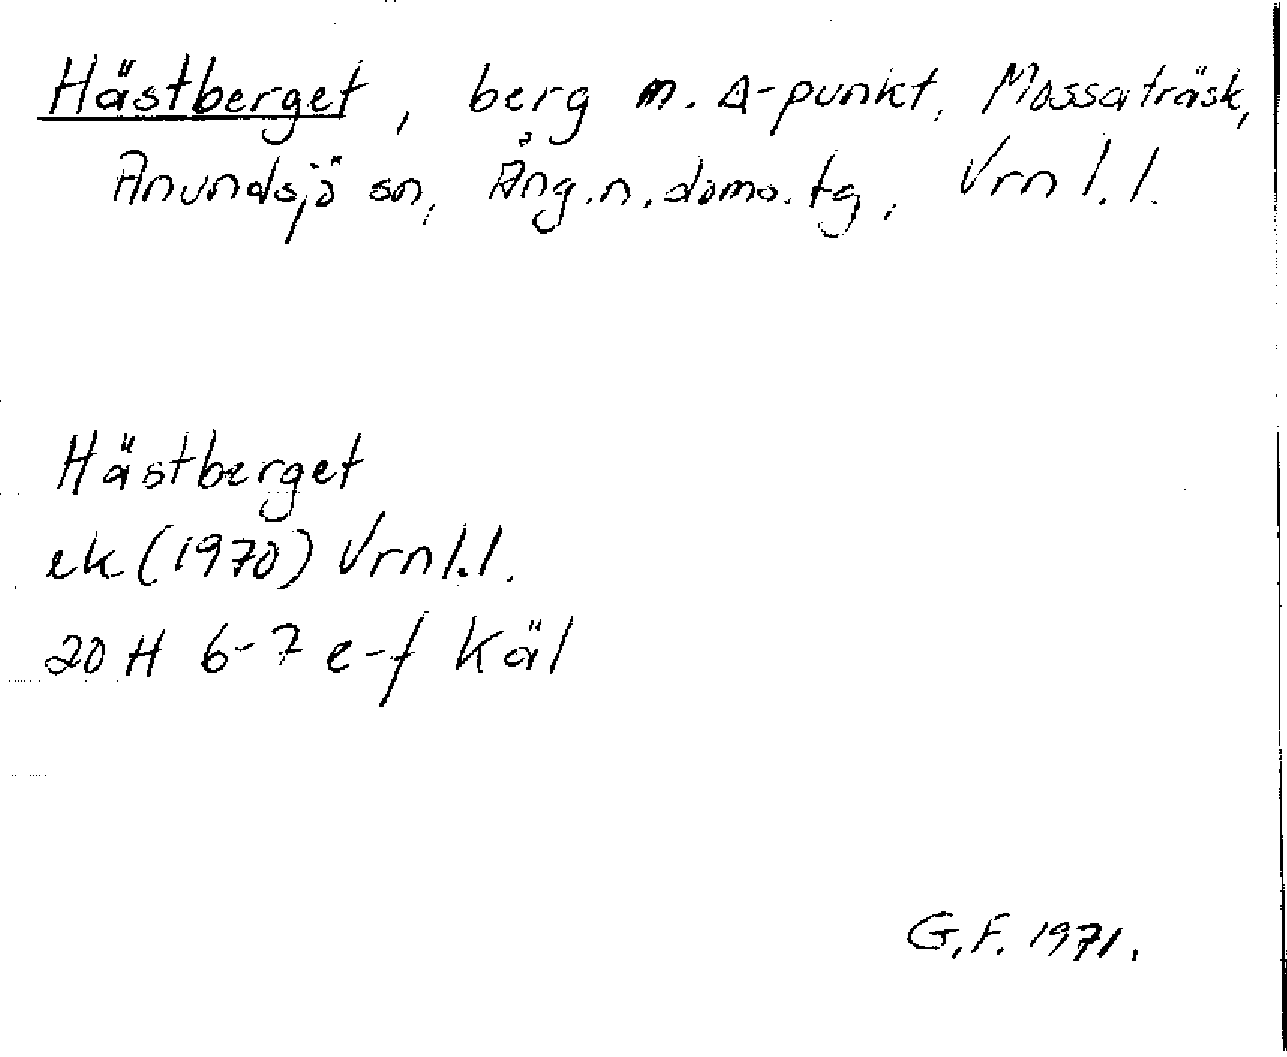 Hästberget, berg m. Δ-punkt. Mossaträsk,
Anundsjö sn, Ång.n.doms.tg, Vrn l. l.
Hästberget
ek (1970) Vrn l. l.
20 H 6-7 e-f Käl
G.F. 1971.